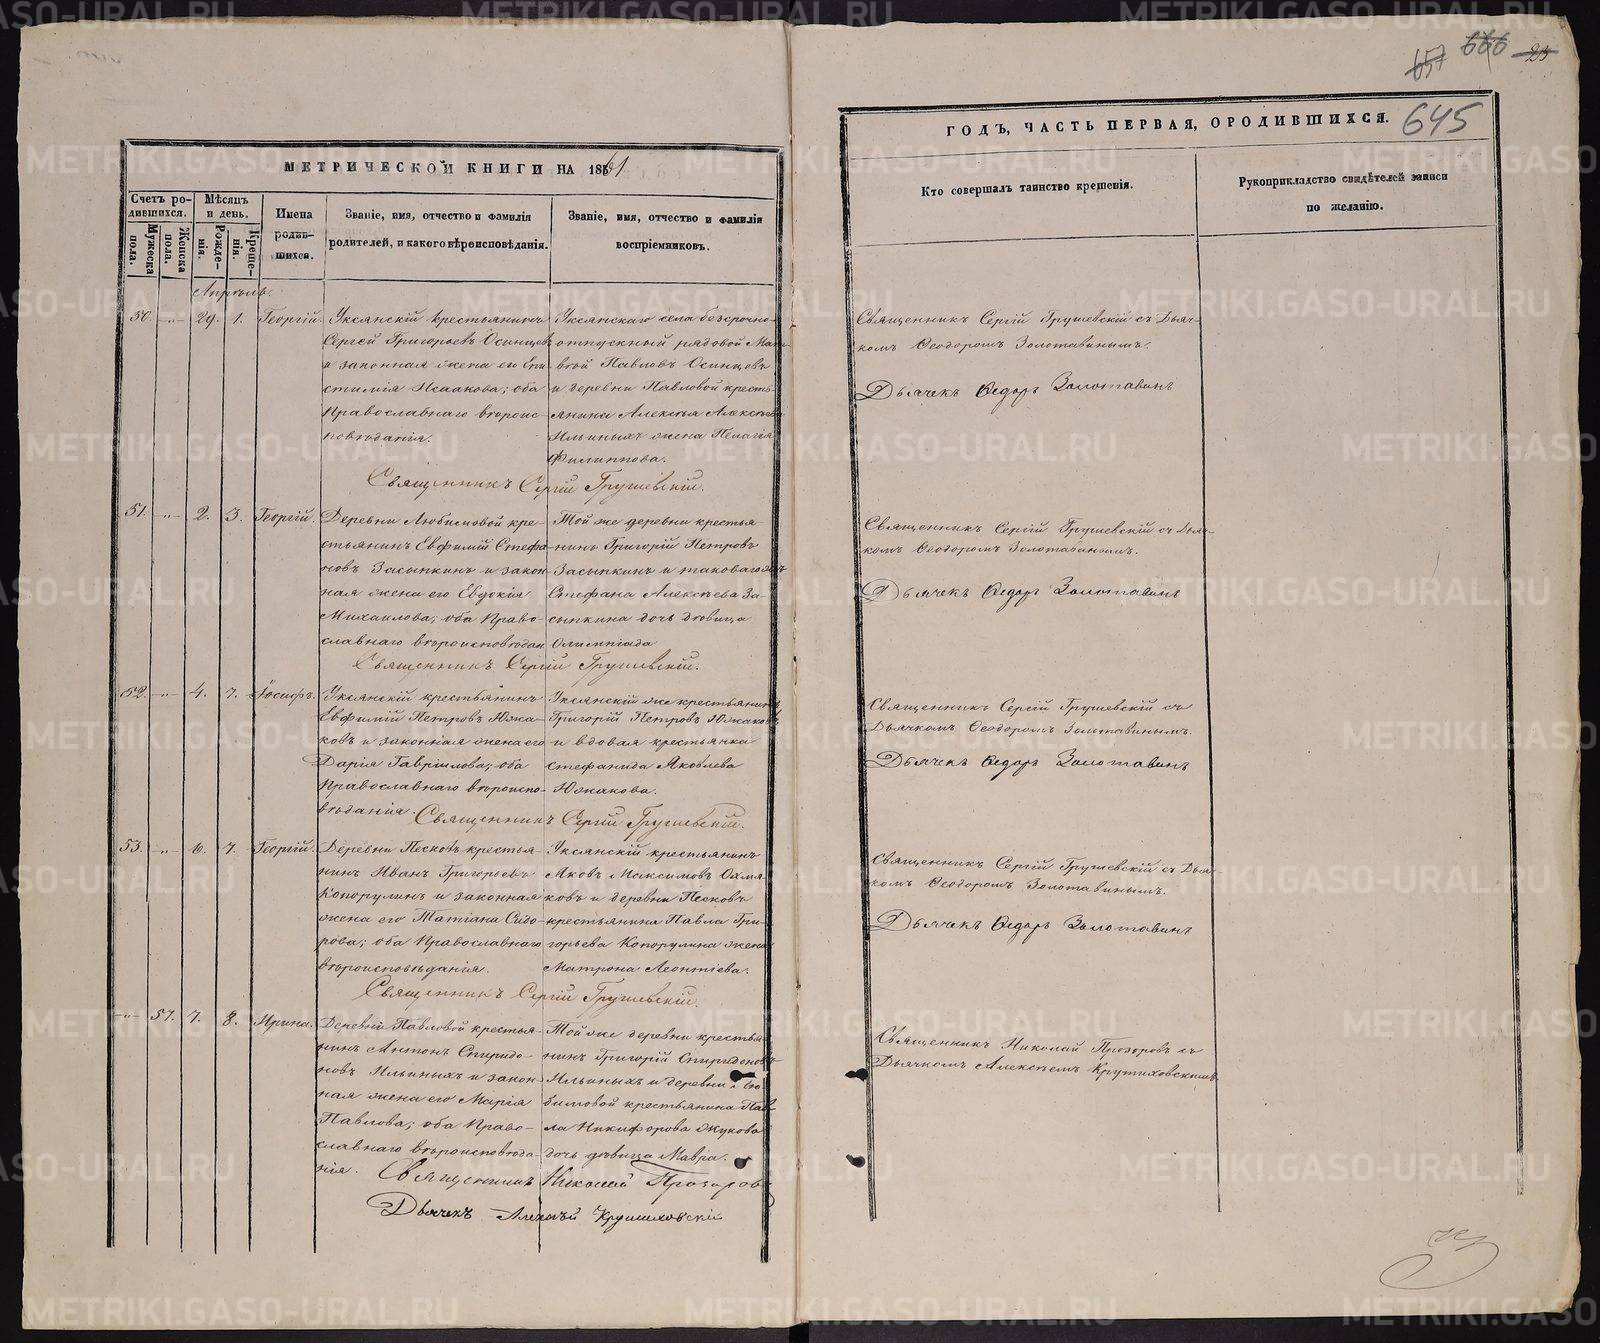 МЕТРИЧЕСКОЙ КНИГИ НА 1861
Счетъ ро-
дившихся.
Мужеска
пола.
Женска
пола.
Мѣсяцъ
и день.
Рожде-
нія.
Креще-
нія.
Имена
родив-
шихся.
Званіе, имя, отчество и фамилія
родителей, и какого вѣроисповѣданія.
Званіе, имя, отчество и фамилія
воспріемниковъ.
Апрѣль.
50. -„- 29. 1. Георгій.
Уксянскій крестьянинъ
Сергей Григорьевъ Осинцевъ
и законная жена его Епи-
стимія Исаакова; оба
Православнаго вѣроис-
повѣданія.
Уксянскаго села безсрочно-
отпускный рядовой
Павловъ Осинцовъ
и деревни Павловой кресть-
янина Алексѣя Алексѣева
Ильиныхъ жена Пелагія
Филиппова.
Священникъ Сергій Грушевскій.
51. -„- 2. 3. Георгій.
Деревни Любимовой кре-
стьянинъ Евфимій Стефа-
новъ Засыпкинъ и закон-
ная жена его Евдокія
Михаилова; оба Право-
славнаго вѣроисповѣдан
Той же деревни крестья-
нинъ Григорій Петровъ
Засыпкинъ и таковаго же
Стефана Алексѣева За-
сыпкина дочь дѣвица
Олимпіада
Священникъ Сергій Грушевскій.
52. -„- 4. 7. Іосифъ.
Уксянскій крестьянинъ
Евфимій Петровъ Южа-
ковъ и законная жена его
Дарія Гавріилова; оба
Православнаго вѣроиспо-
вѣданія
Уксянскій же крестьянинъ
Григорій Петровъ Южаковъ
и вдовая крестьянка
Стефанида Яковлева
Южакова.
Священникъ Сергій Грушевскій.
53. -„- 6. 7. Георгій.
Деревни Песковъ крестья-
нинъ Иванъ Григорьевъ
Копорулинъ и законная
жена его Татіана Сидо-
рова; оба Православнаго
вѣроисповѣданія.
Уксянскій крестьянинъ
Яковъ Максимовъ
ковъ и деревни Песковъ
крестьянина Павла Гри-
горьева Копорулина жена
Матрона Леонтіева.
Священникъ Сергій Грушевскій.
-„- 57. 7. 8. Ирина.
Деревни Павловой крестья-
нинъ Антонъ Спиридо-
новъ Ильиныхъ и закон-
ная жена его Марія
Павлова; оба Право-
славнаго вѣроисповѣда-
нія.
Той же деревни крестья-
нинъ Григорій Спиридоновъ
Ильиныхъ и деревни Лю-
бимовой крестьянина Пав-
ла Никифорова Жукова
дочь дѣвица Мавра.
Священникъ Николай Прозоровъ
Дьячекъ Алексѣй Крутиховскій
657 666 25
645
ГОДЪ, ЧАСТЬ ПЕРВАЯ, О РОДИВШИХСЯ.
Кто совершалъ таинство крещенія.
Рукоприкладство свидѣтелей записи
по желанію.
Священникъ Сергій Грушевскій съ Дьяч-
комъ Ѳеодоромъ Золотавинымъ.
Дьячекъ Ѳедоръ Золотавинъ
Священникъ Сергій Грушевскій съ Дьяч-
комъ Ѳеодоромъ Золотавинымъ.
Дьячекъ Ѳедоръ Золотавинъ
Священникъ Сергій Грушевскій съ
Дьячкомъ Ѳеодоромъ Золотавинымъ.
Дьячекъ Ѳедоръ Золотавинъ
Священникъ Сергій Грушевскій съ Дьяч-
комъ Ѳеодоромъ Золотавинымъ.
Дьячекъ Ѳедоръ Золотавинъ
Священникъ Николай Прозоровъ съ
Дьячкомъ Алексѣемъ Крутиховскимъ.
METRIKI.GASO-URAL.RU